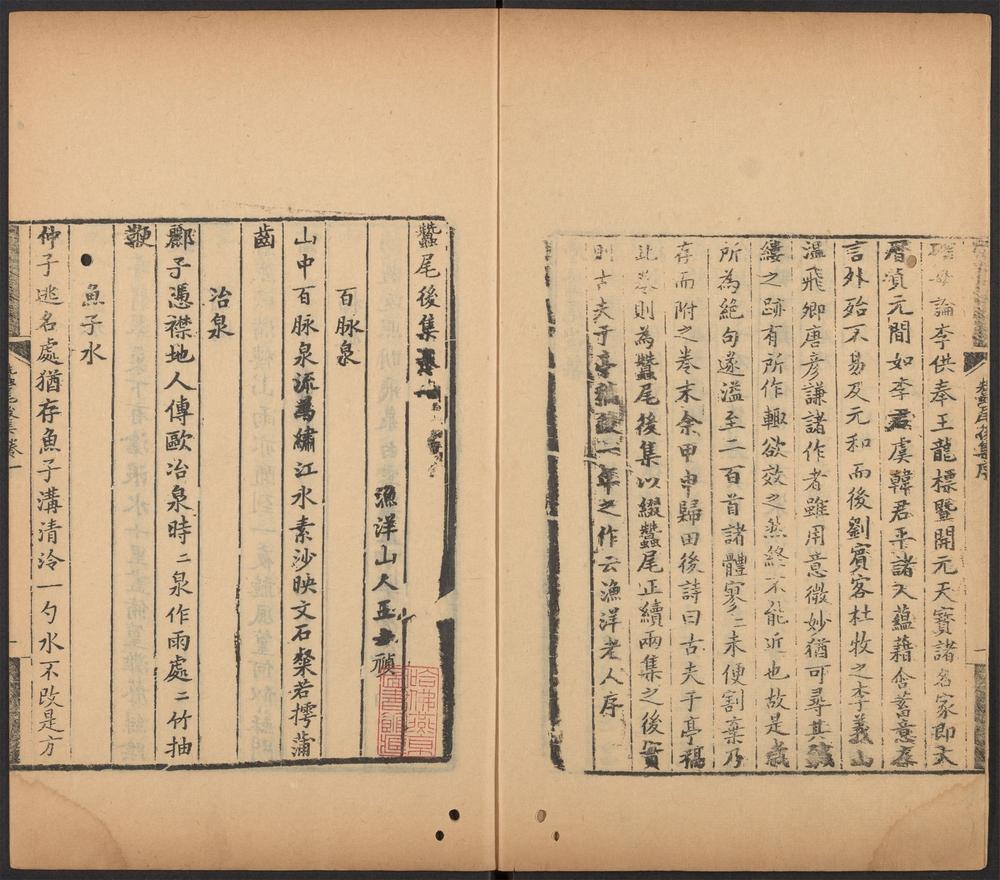 蠶尾後集序
論李供奉王龍標暨開元天寶諸名家即大
曆貞元間如李君虞韓君平諸人蘊藉含蓄意在
言外殆不易及元和而後劉賓客杜牧之李義山
溫飛卿唐彥謙諸作者雖用意微妙猶可尋其鍼
縷之跡有所作輒欲效之然終不能近也故是歲
所為絕句遂溢至二百首諸體寥二未便割棄乃
存而附之卷末余甲申歸田後詩曰古夫于亭稿
此卷則為蠶尾後集以綴蠶尾正續兩集之後實
則古夫于亭稿後一年之作云漁洋老人序
蠶尾後集卷一
漁洋山人王士禎
百脉泉
山中百脉泉流為繡江水素沙映文石粲若摴蒲
齒
冶泉
酈子憑襟地人傳歐冶泉時二泉作雨處二竹抽
鞭
魚子水
仲子逃名處猶存魚子溝清泠一勺水不改是方
蠶尾後集卷一
一